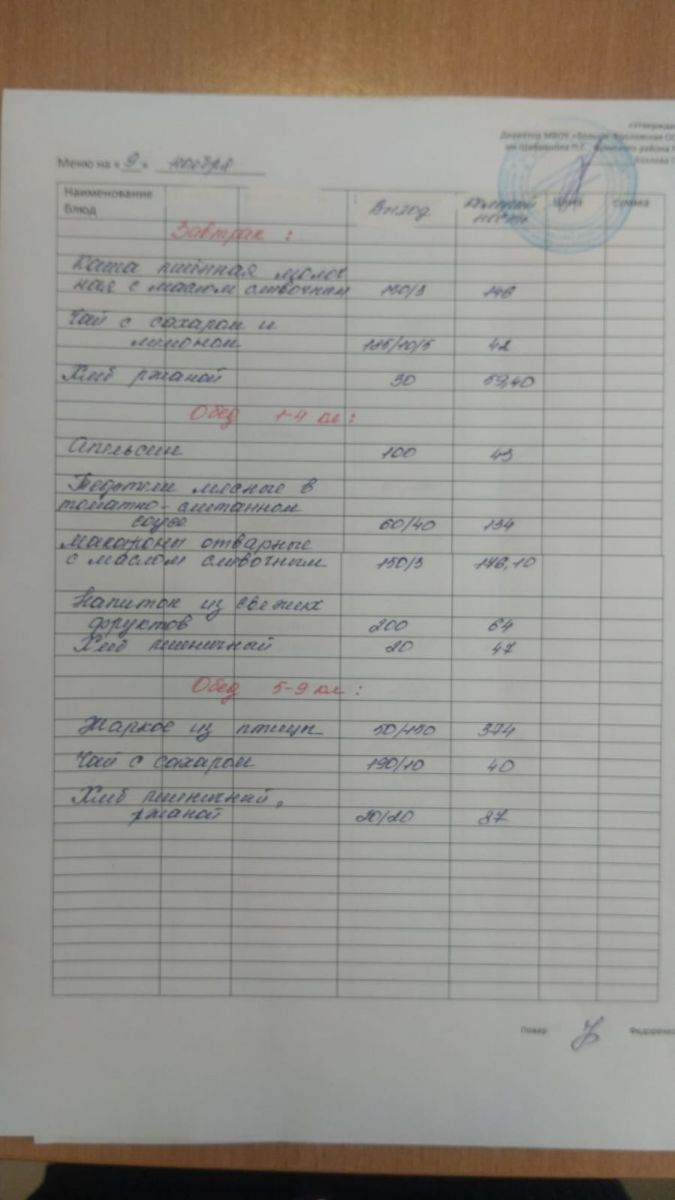 «Утвержда
Директор МБОУ «Больше-Крепинская ОО
им Шабранова П.Г. района
Козлова
Меню на «9» ноября
Наименование блюд Выход Калорий Цена сумма
ность
Завтрак :
Каша пшённая молоч
ная с маслом сливочным 150/3 146
Чай с сахаром и
лимоном 185/10/5 42
Хлеб ржаной 30 59,40
Обед 1-4 кл :
Апельсин 100 43
Тефтели мясные в
томатно-сметанном
соусе 60/40 134
Макароны отварные
с маслом сливочным 150/3 176,10
Напиток из свежих
фруктов 200 64
Хлеб пшеничный 20 47
Обед 5-9 кл :
Жаркое из птицы 50/150 374
Чай с сахаром 190/10 40
Хлеб пшеничный,
ржаной 20/20 87
Повар Федоренко